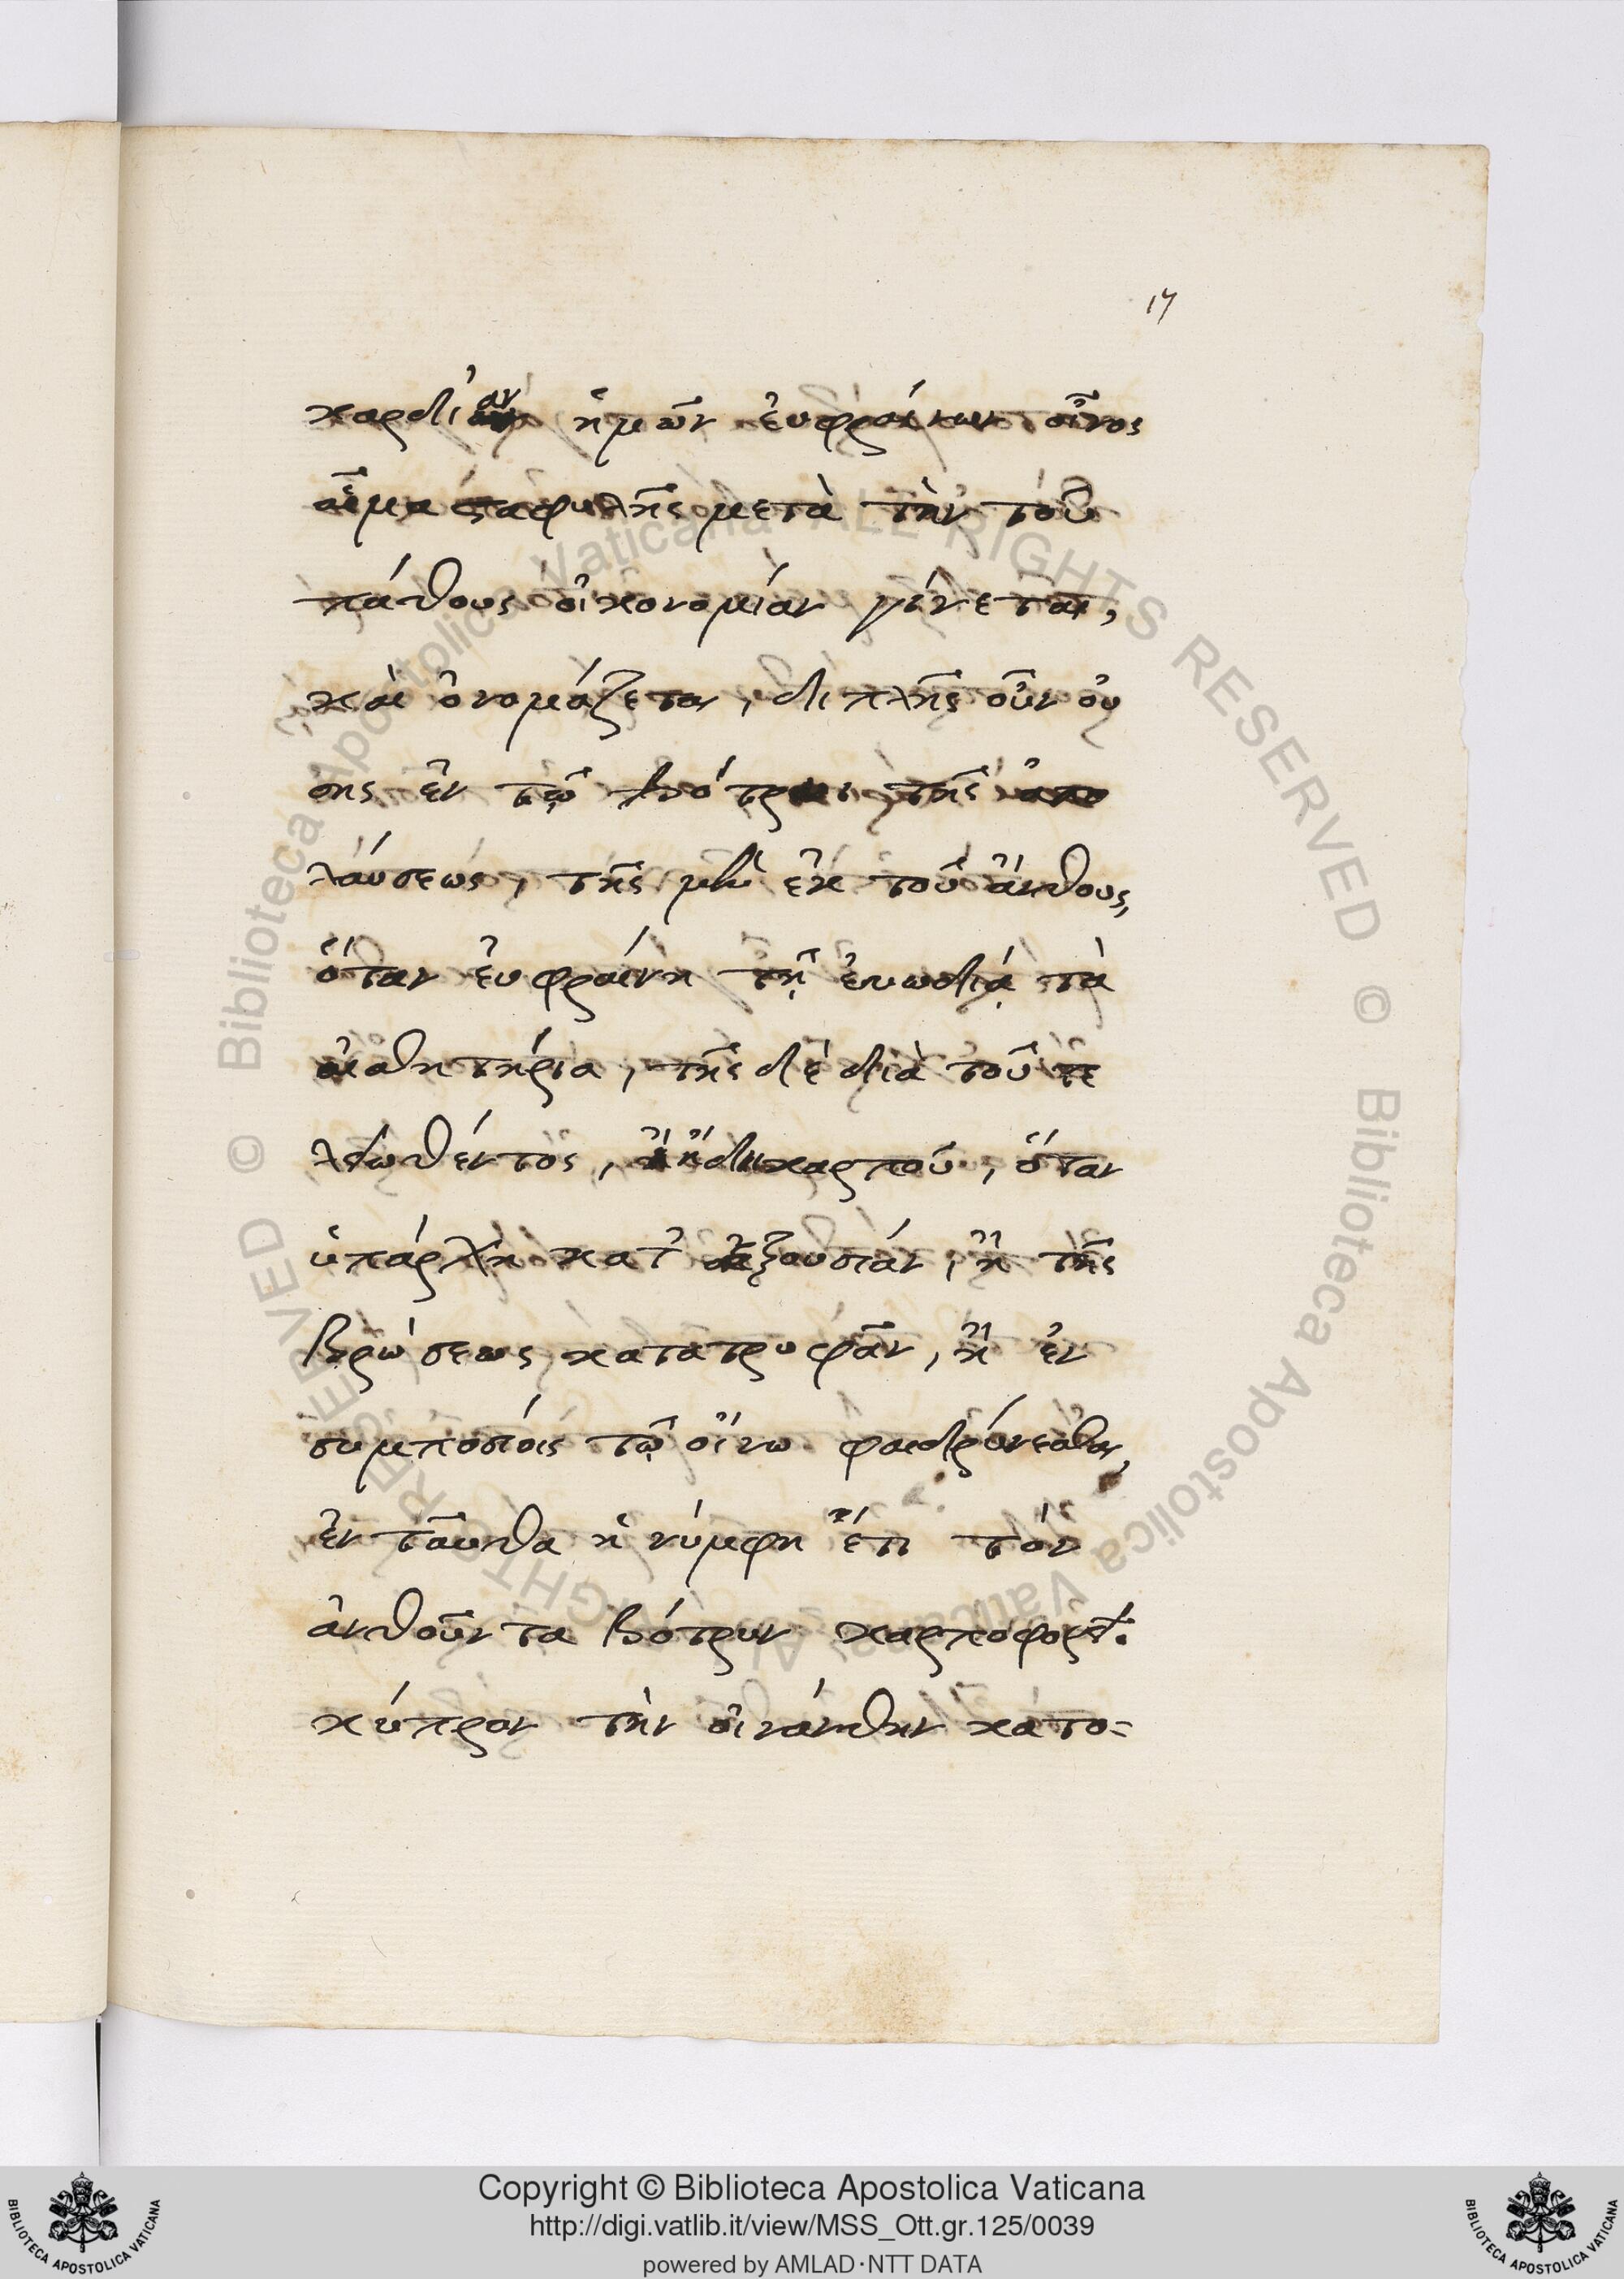 17
καρδίαν ἡμῶν ἐυφραίνων οἶνος
αἷμα σταφυλῆς μετὰ τὴν τοῦ
πάθους οἰκονομίαν γίνεται,
καὶ ὀνομάζεται, διπλῆς οὖν οὔ
σης ἐν τῷ βότρυι τῆς ἀπο
λαύσεως, τῆς μὲν ἐκ τοῦ ἄνθους,
ὅταν ἐυφραίνη τῇ ἐυωδίᾳ τὰ
αἰσθητήρια, τῆς δὲ διὰ τοῦ τε
λειωθέντος, ἤδη καρποῦ, ὅταν
ὑπάρχη κατ' ἐξουσίαν, ἢ τῆς
βρώσεως κατατρυφᾶν, ἢ ἐν
συμποσίοις τῷ οἴνω φαιδρύνεσθαι,
ἐνταῦθα ἡ νύμφη ἔτι τὸν
ἀνθοῦντα βότρυν καρποφορεῖ.
κύπρον τὴν οἰνάνθην κατο-
Biblioteca Apostolica Vaticana ALL RIGHTS RESERVED © Biblioteca Apostolica Vaticana ALL RIGHTS RESERVED ©
Copyright © Biblioteca Apostolica Vaticana
http://digi.vatlib.it/view/MSS_Ott.gr.125/0039
powered by AMLAD·NTT DATA
BIBLIOTECA APOSTOLICA VATICANA
BIBLIOTECA APOSTOLICA VATICANA